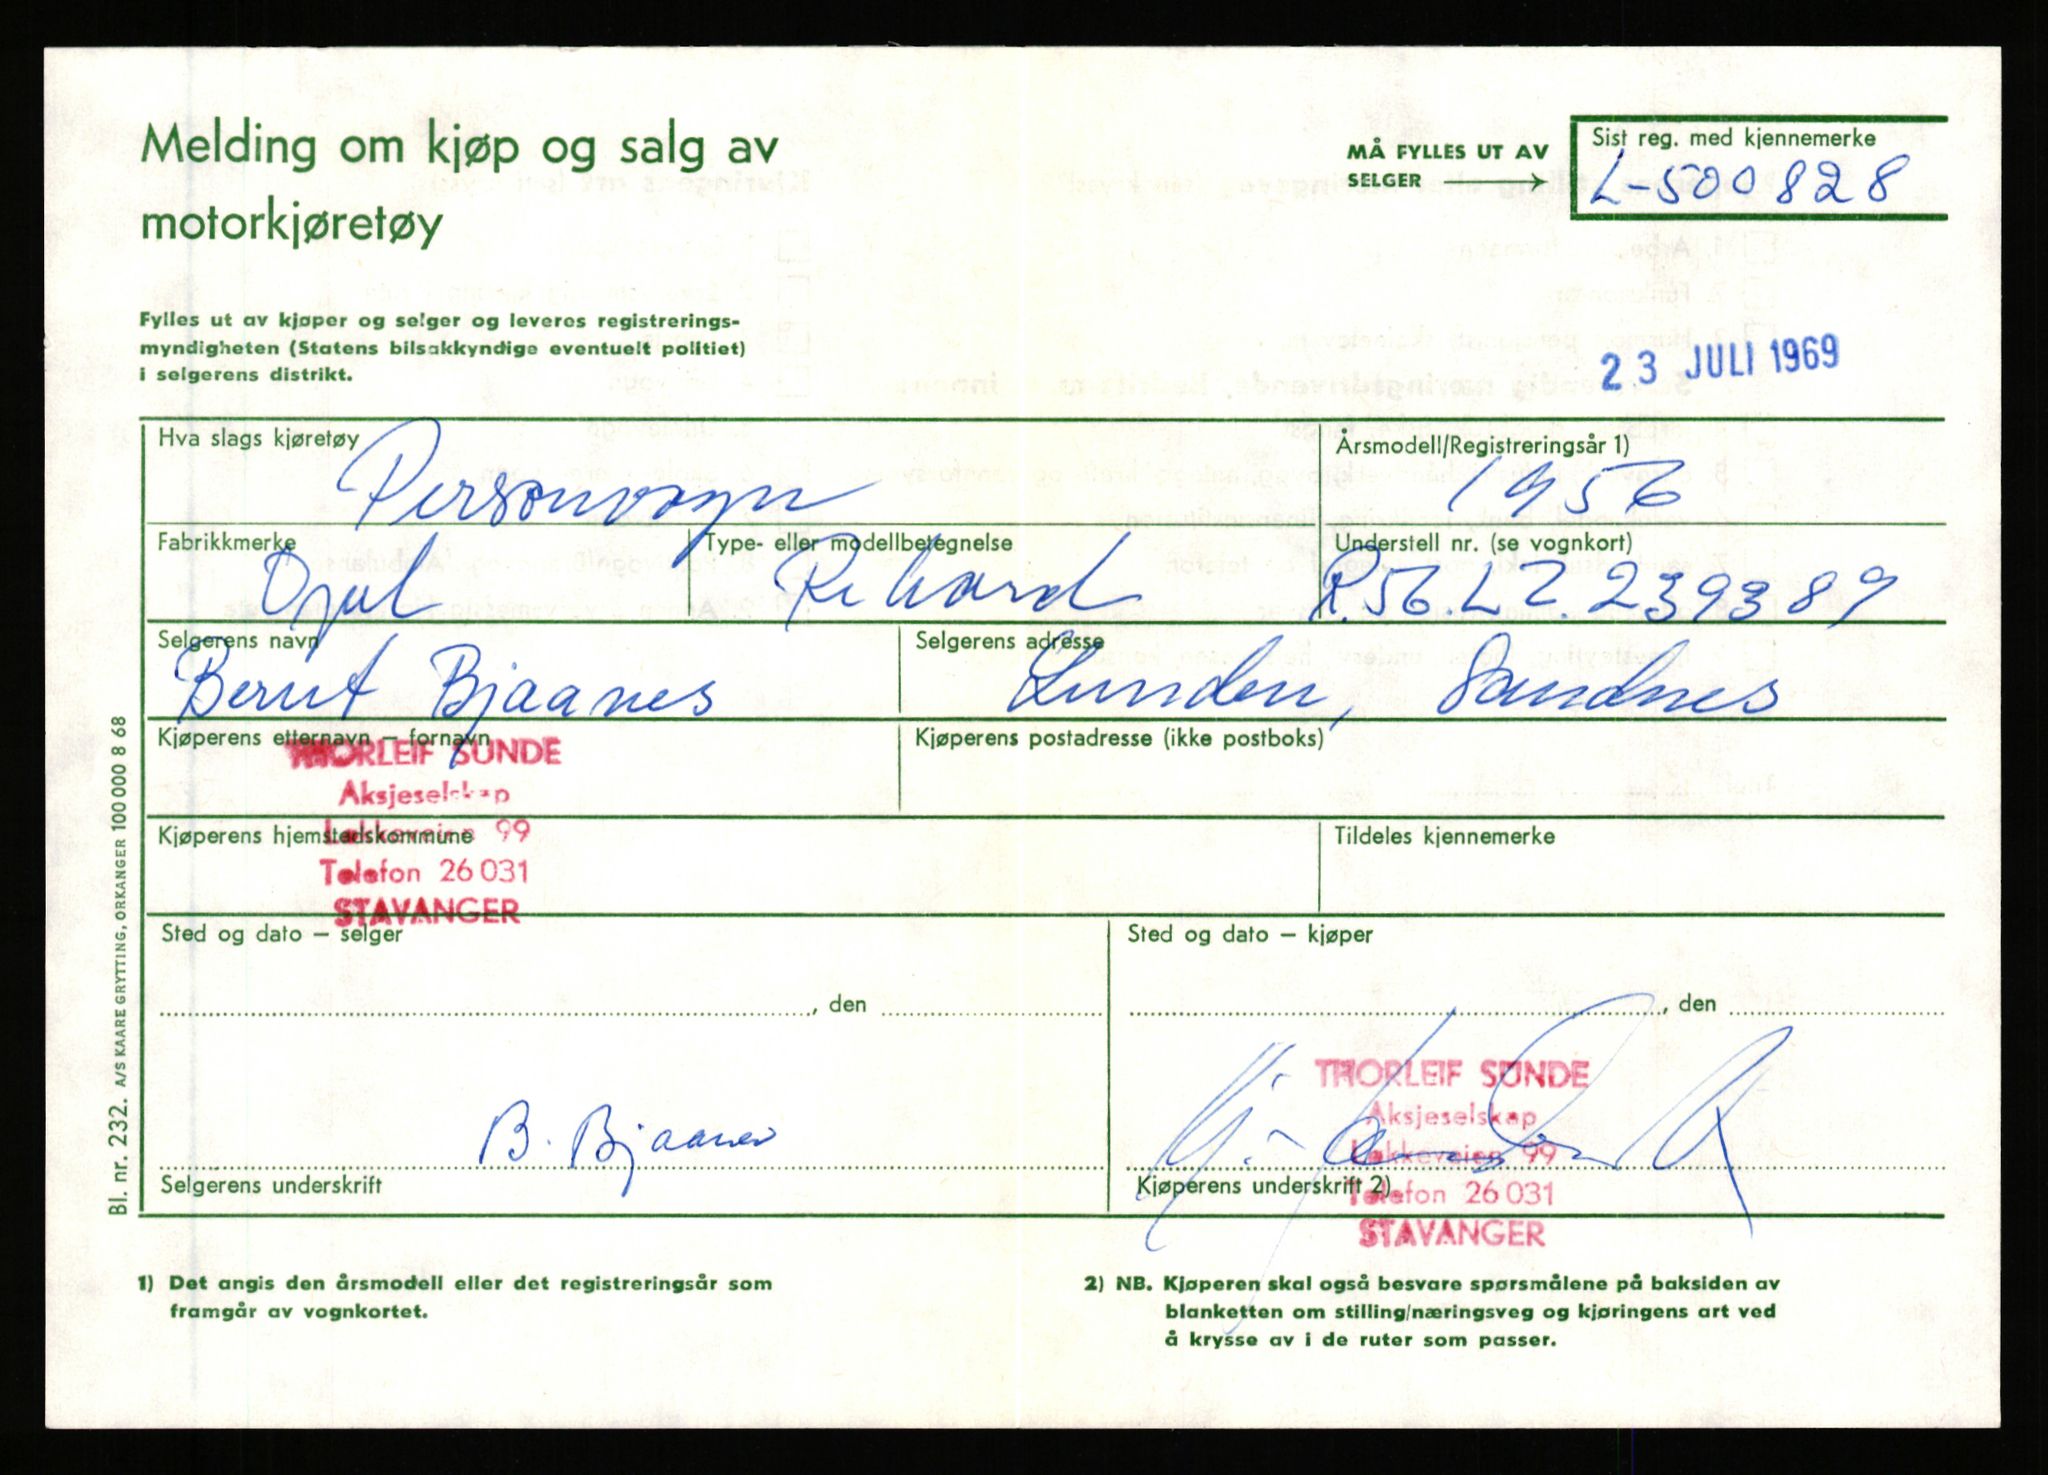 Melding om kjøp og salg av
motorkjøretøy
MÅ FYLLES UT AV
SELGER
Sist reg. med kjennemerke
L-500828
Fylles ut av kjøper og selger og leveres registrerings-
myndigheten (Statens bilsakkyndige eventuelt politiet)
i selgerens distrikt.
23 JULI 1969
Hva slags kjøretøy
Personvogn
Årsmodell/Registreringsår 1)
1956
Fabrikkmerke
Opel
Type- eller modellbetegnelse
Rekord
Understell nr. (se vognkort)
R.56.LZ.239389
Selgerens navn
Bernt Bjaanes
Selgerens adresse
Lunden, Sandnes
Kjøperens etternavn – fornavn
THORLEIF SUNDE
Aksjeselskap
Løkkeveien 99
Telefon 26031
STAVANGER
Kjøperens postadresse (ikke postboks)
Kjøperens hjemstedskommune
Tildeles kjennemerke
Sted og dato – selger
, den
Sted og dato – kjøper
, den
B. Bjaanes
Selgerens underskrift
THORLEIF SUNDE
Aksjeselskap
Løkkeveien 99
Telefon 26031
STAVANGER
Kjøperens underskrift 2)
1) Det angis den årsmodell eller det registreringsår som
framgår av vognkortet.
2) NB. Kjøperen skal også besvare spørsmålene på baksiden av
blanketten om stilling/næringsveg og kjøringens art ved
å krysse av i de ruter som passer.
Bl. nr. 232. A/S KAARE GRYTTING, ORKANGER 100 000 8 68